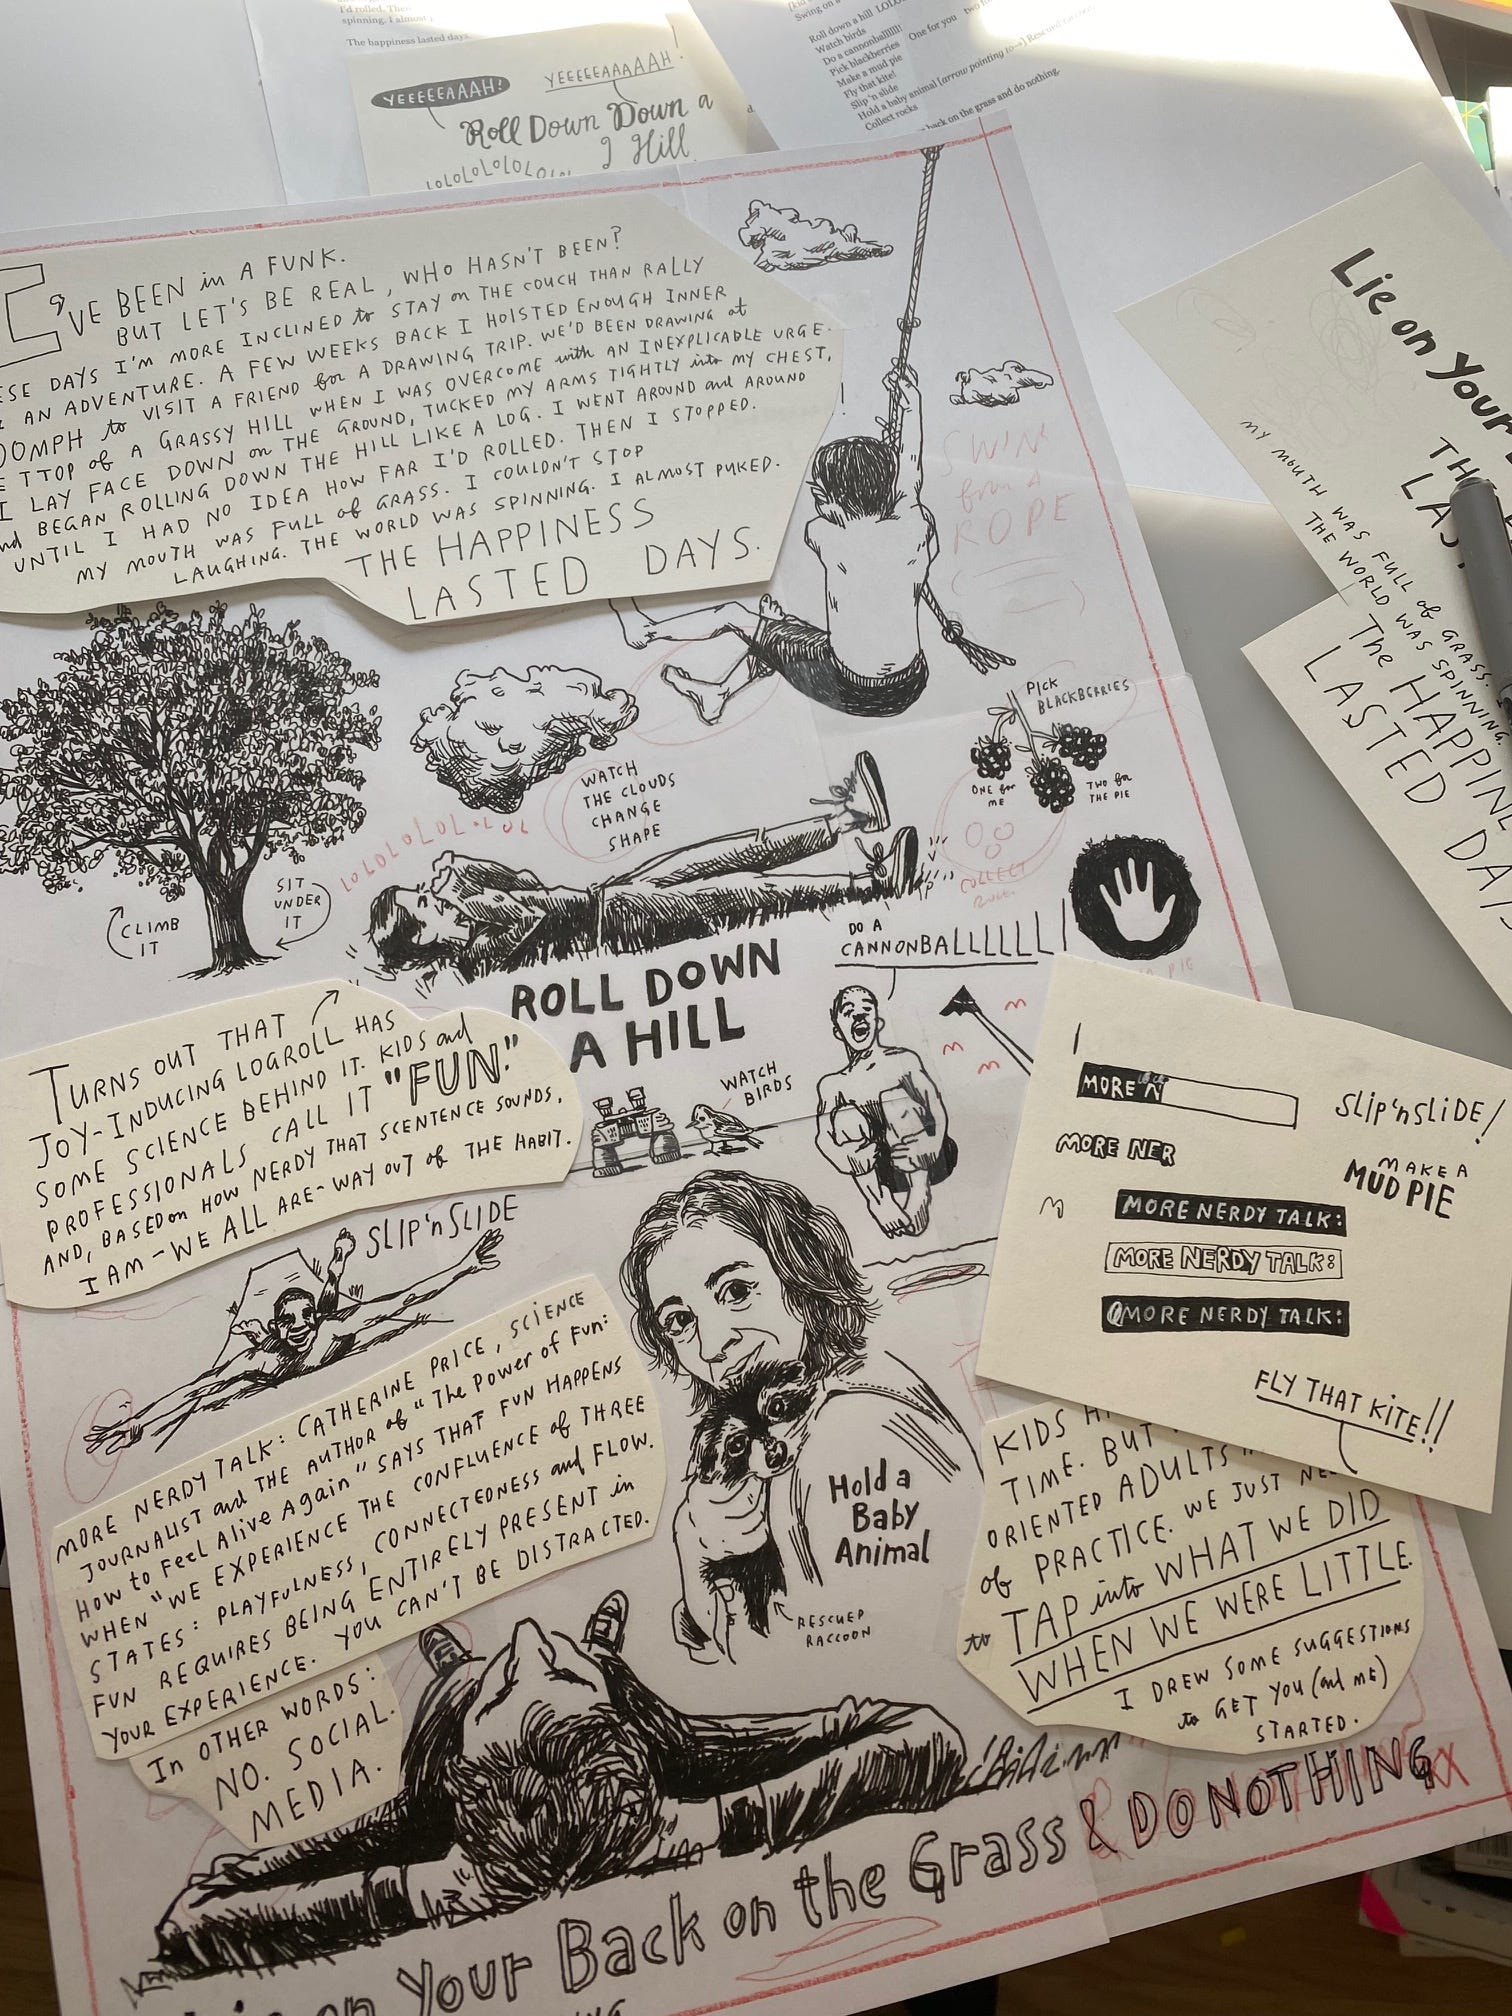 I'd rolled. Then
spinning, I almost
The happiness lasted days.
Swing on a
Roll down a hill LOLO
Watch birds
Do a cannonballlll!
Pick blackberries One for you two fo
Make a mud pie
Fly that kite!
Slip 'n slide
Hold a baby animal [arrow pointing to→] Rescued raccoon
Collect rocks
back on the grass and do nothing.
YEEEEEAAAAH!
YEEEEEAAAAAH!
Roll Down Down a
Hill
LOLOLOLOLOLOL
I'VE BEEN in A FUNK.
BUT LET'S BE REAL, WHO HASN'T BEEN?
ESE DAYS I'M MORE INCLINED to STAY on THE COUCH THAN RALLY
AN ADVENTURE. A FEW WEEKS BACK I HOISTED ENOUGH INNER
OOMPH to VISIT A FRIEND for A DRAWING TRIP. WE'D BEEN DRAWING at
E TTOP of A GRASSY HILL WHEN I WAS OVERCOME with AN INEXPLICABLE URGE.
I LAY FACE DOWN on THE GROUND, TUCKED MY ARMS TIGHTLY into MY CHEST,
and BEGAN ROLLING DOWN THE HILL LIKE A LOG. I WENT AROUND and AROUND
UNTIL I HAD NO IDEA HOW FAR I'D ROLLED. THEN I STOPPED.
MY MOUTH WAS FULL of GRASS. I COULDN'T STOP
LAUGHING. THE WORLD WAS SPINNING. I ALMOST PUKED.
THE HAPPINESS
LASTED DAYS.
SWING
from A
ROPE
Lie on Your
LAS
MY MOUTH WAS FULL of GRASS.
THE WORLD WAS SPINNING.
The HAPPINE
LASTED DAYS
PICK
BLACKBERRIES
ONE for
ME
TWO for
THE PIE
WATCH
THE CLOUDS
CHANGE
SHAPE
LOLOLOLOL.LOL
COLLECT
CLIMB
IT
SIT
UNDER
IT
DO A
CANNONBALLLLLLL!
ROLL DOWN
A HILL
WATCH
BIRDS
TURNS OUT THAT
JOY-INDUCING LOGROLL HAS
SOME SCIENCE BEHIND IT. KIDS and
PROFESSIONALS CALL IT "FUN."
AND, BASED on HOW NERDY THAT SCENTENCE SOUNDS,
I AM - WE ALL ARE - WAY OUT of THE HABIT.
SLIP 'n SLIDE
MORE N
SLIP 'n SLIDE!
MORE NER
MAKE A
MUD PIE
MORE NERDY TALK:
MORE NERDY TALK:
MORE NERDY TALK:
FLY THAT KITE!!
MORE NERDY TALK: CATHERINE PRICE, SCIENCE
JOURNALIST and THE AUTHOR of "The Power of Fun:
How to Feel Alive Again" SAYS THAT FUN HAPPENS
WHEN "WE EXPERIENCE THE CONFLUENCE of THREE
STATES: PLAYFULNESS, CONNECTEDNESS and FLOW.
FUN REQUIRES BEING ENTIRELY PRESENT in
YOUR EXPERIENCE. YOU CAN'T BE DISTRACTED.
In OTHER WORDS:
NO. SOCIAL.
MEDIA.
Hold a
Baby
Animal
RESCUED
RACCOON
KIDS H
TIME. BUT
ORIENTED ADULTS
of PRACTICE. WE JUST NE
to TAP into WHAT WE DID
WHEN WE WERE LITTLE.
I DREW SOME SUGGESTIONS
to GET YOU (and ME)
STARTED.
on Your Back on the Grass & DO NOTHING